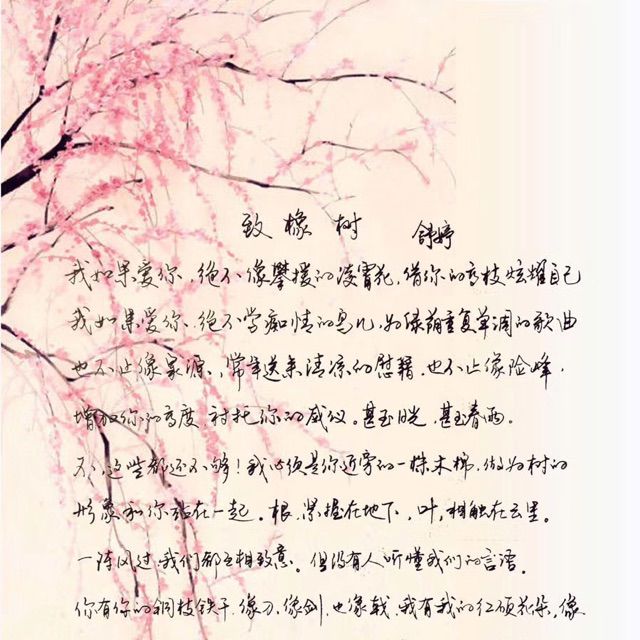 致橡树 舒婷
我如果爱你，绝不像攀援的凌霄花，借你的高枝炫耀自己
我如果爱你，绝不学痴情的鸟儿，为绿荫重复单调的歌曲
也不止像泉源，常年送来清凉的慰藉。也不止像险峰，
增加你的高度，衬托你的威仪。甚至日光，甚至春雨。
不，这些都还不够！我必须是你近旁的一株木棉，做为树的
形象和你站在一起。根，紧握在地下，叶，相触在云里。
一阵风过，我们都互相致意。但没有人听懂我们的言语。
你有你的铜枝铁干，像刀，像剑，也像戟，我有我的红硕花朵，像